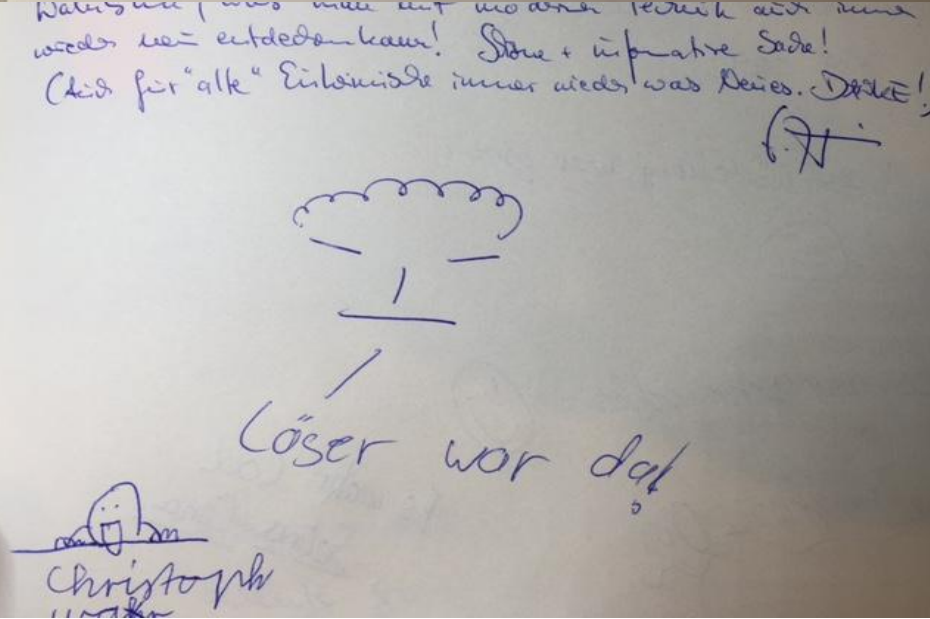 Wahnsinn, was man mit moderner Technik auch immer
wieder neu entdecken kann! Schöne + informative Sache!
(Auch für "alte" Einheimische immer wieder was Neues. DANKE!)
Löser war da!
Christoph